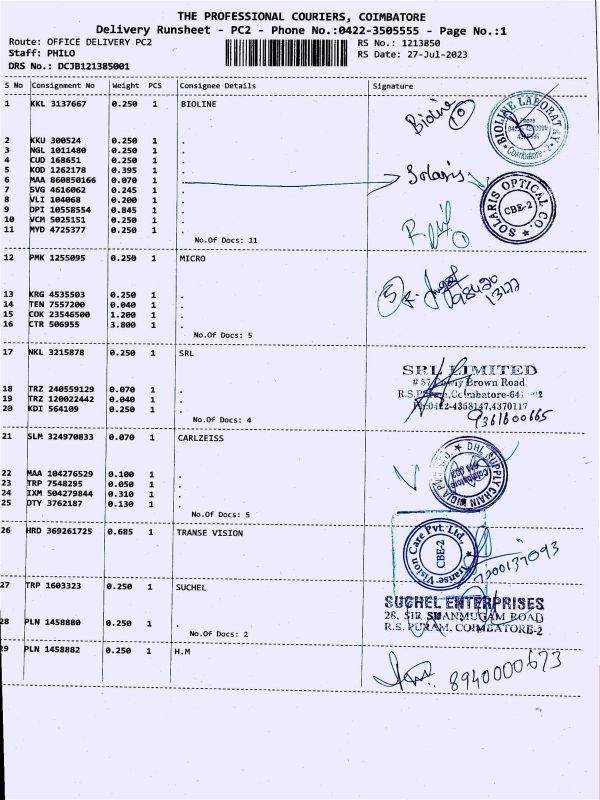 THE PROFESSIONAL COURIERS, COIMBATORE
Delivery Runsheet - PC2 - Phone No.:0422-3505555 - Page No.:1
Route: OFFICE DELIVERY PC2
RS No.: 1213850
Staff: PHILO
RS Date: 27-Jul-2023
DRS No.: DCJB121385001
S No Consignment No Weight PCS Consignee Details Signature
1 KKL 3137667 0.250 1 BIOLINE
Bioline 10
BIOLINE LABORATORY
Coimbatore - 2
2 KKU 300524 0.250 1 .
3 NGL 1011480 0.250 1 .
4 CUD 168651 0.250 1 .
5 KOD 1262178 0.395 1 .
6 MAA 860850166 0.070 1 . Solaris
7 SVG 4616062 0.245 1 .
8 VLI 104068 0.200 1 .
9 DPI 10558554 0.845 1 .
10 VCM 5025151 0.250 1 .
11 MYD 4725377 0.250 1 .
SOLARIS OPTICAL CO.
CBE-2
No.Of Docs: 11
12 PMK 1255095 0.250 1 MICRO
13 KRG 4535503 0.250 1 .
14 TEN 7557200 0.040 1 .
15 COK 23546500 1.200 1 .
16 CTR 506955 3.800 1 .
No.Of Docs: 5
17 NKL 3215878 0.250 1 SRL
SRL LIMITED
Brown Road
Coimbatore-641
0422-4358147,4370117
9361600665
18 TRZ 240559129 0.070 1 .
19 TRZ 120022442 0.040 1 .
20 KDI 564109 0.250 1 .
No.Of Docs: 4
21 SLM 324970833 0.070 1 CARLZEISS
DHL SUPPLY CHAIN INDIA PVT LTD
Coimbatore
22 MAA 104276529 0.100 1 .
23 TRP 7548295 0.050 1 .
24 IXM 504279844 0.310 1 .
25 DTY 3762187 0.130 1 .
No.Of Docs: 5
26 HRD 369261725 0.685 1 TRANSE VISION
Transe Vision Care Pvt. Ltd.,
CBE-2
7200137093
27 TRP 1603323 0.250 1 SUCHEL
SUCHEL ENTERPRISES
26, SIR SHANMUGAM ROAD
R.S. PURAM, COIMBATORE-2
28 PLN 1458880 0.250 1 .
No.Of Docs: 2
29 PLN 1458882 0.250 1 H.M
8940000673